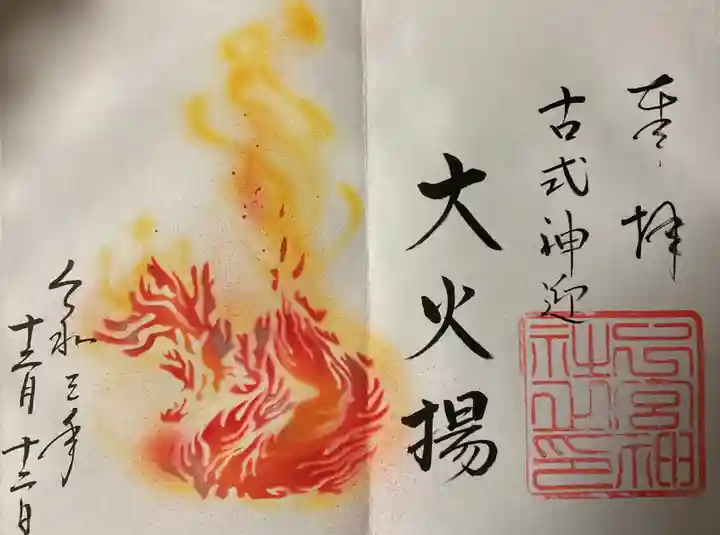 奉拝
古式神迎
大火揚
令和三年
十二月十二日
神
社之印